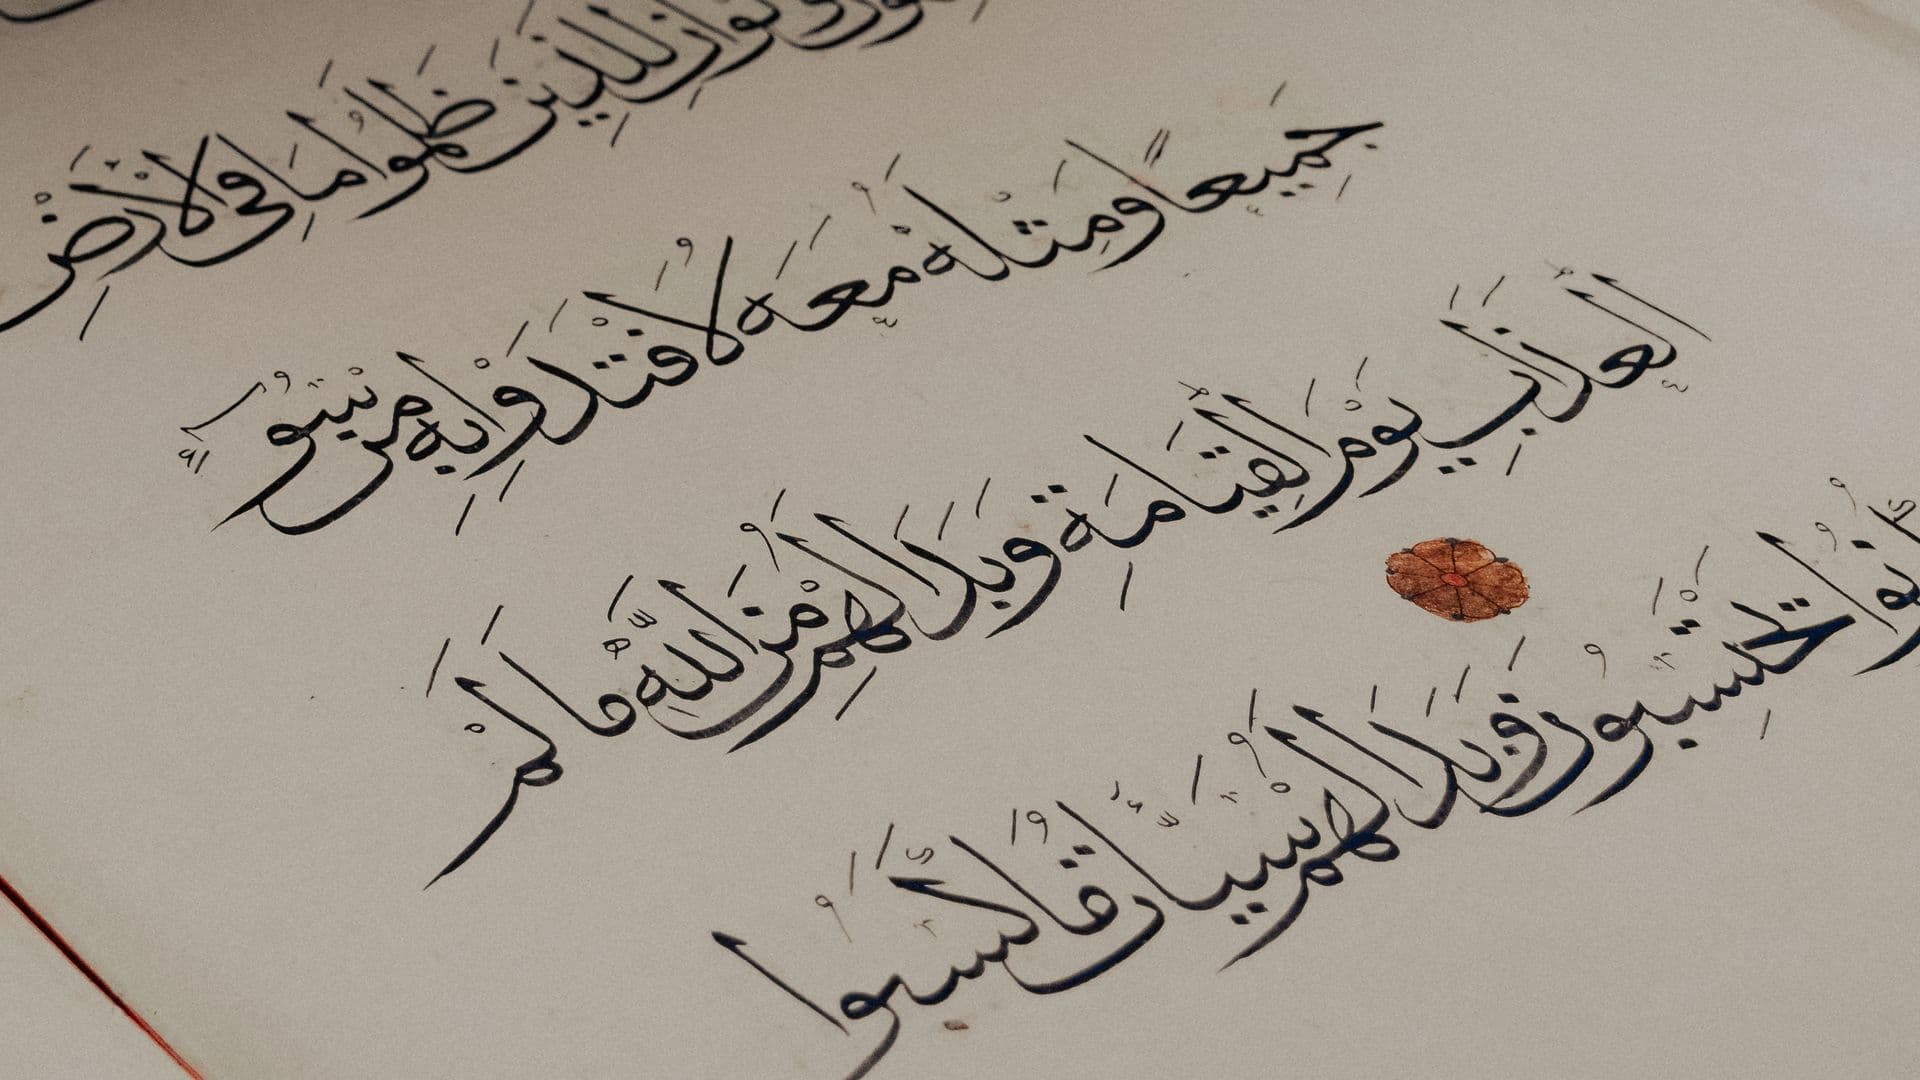 وَلَوْ أَنَّ لِلَّذِينَ ظَلَمُوا مَا فِي الْأَرْضِ
جَمِيعًا وَمِثْلَهُ مَعَهُ لَافْتَدَوْا بِهِ مِنْ سُوءِ
الْعَذَابِ يَوْمَ الْقِيَامَةِ وَبَدَا لَهُمْ مِنَ اللَّهِ مَا لَمْ
يَحْتَسِبُونَ وَبَدَا لَهُمْ سَيِّئَاتُ مَا كَسَبُوا